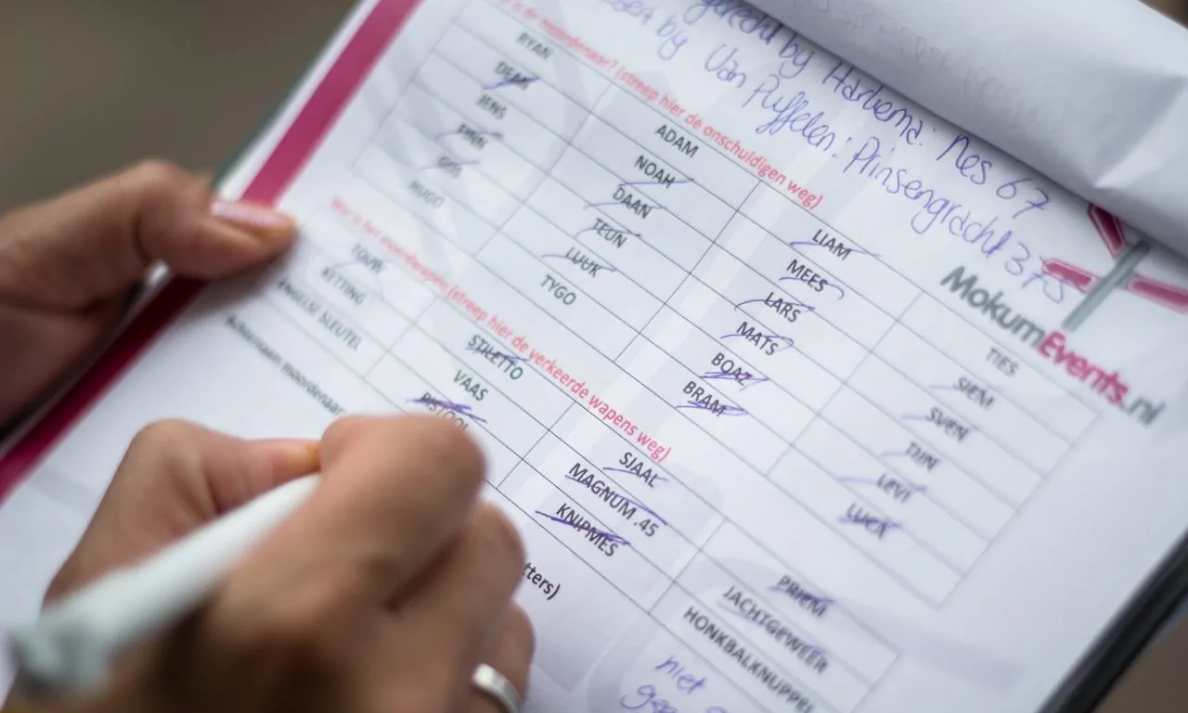 by Harkema: Nes 67
by Van Puffelen: Prinsengracht 375
MokumEvents.nl
is de moordenaar? (streep hier de onschuldigen weg)
RYAN ADAM LIAM TIES
DEAN NOAH MEES SIEM
JENS DAAN LARS SVEN
TEUN MATS TIJN
GUS LUUK BOAZ LEVI
HUGO TYGO BRAM LUCA
Wat is het moordwapen (streep hier de verkeerde wapens weg)
TOUW STILETTO SJAAL PRIEM
KETTING VAAS MAGNUM .45 JACHTGEWEER
ENGELSE SLEUTEL PISTOOL KNIPMES HONKBALKNUPPEL
Achternaam moordenaar
tters)
niet